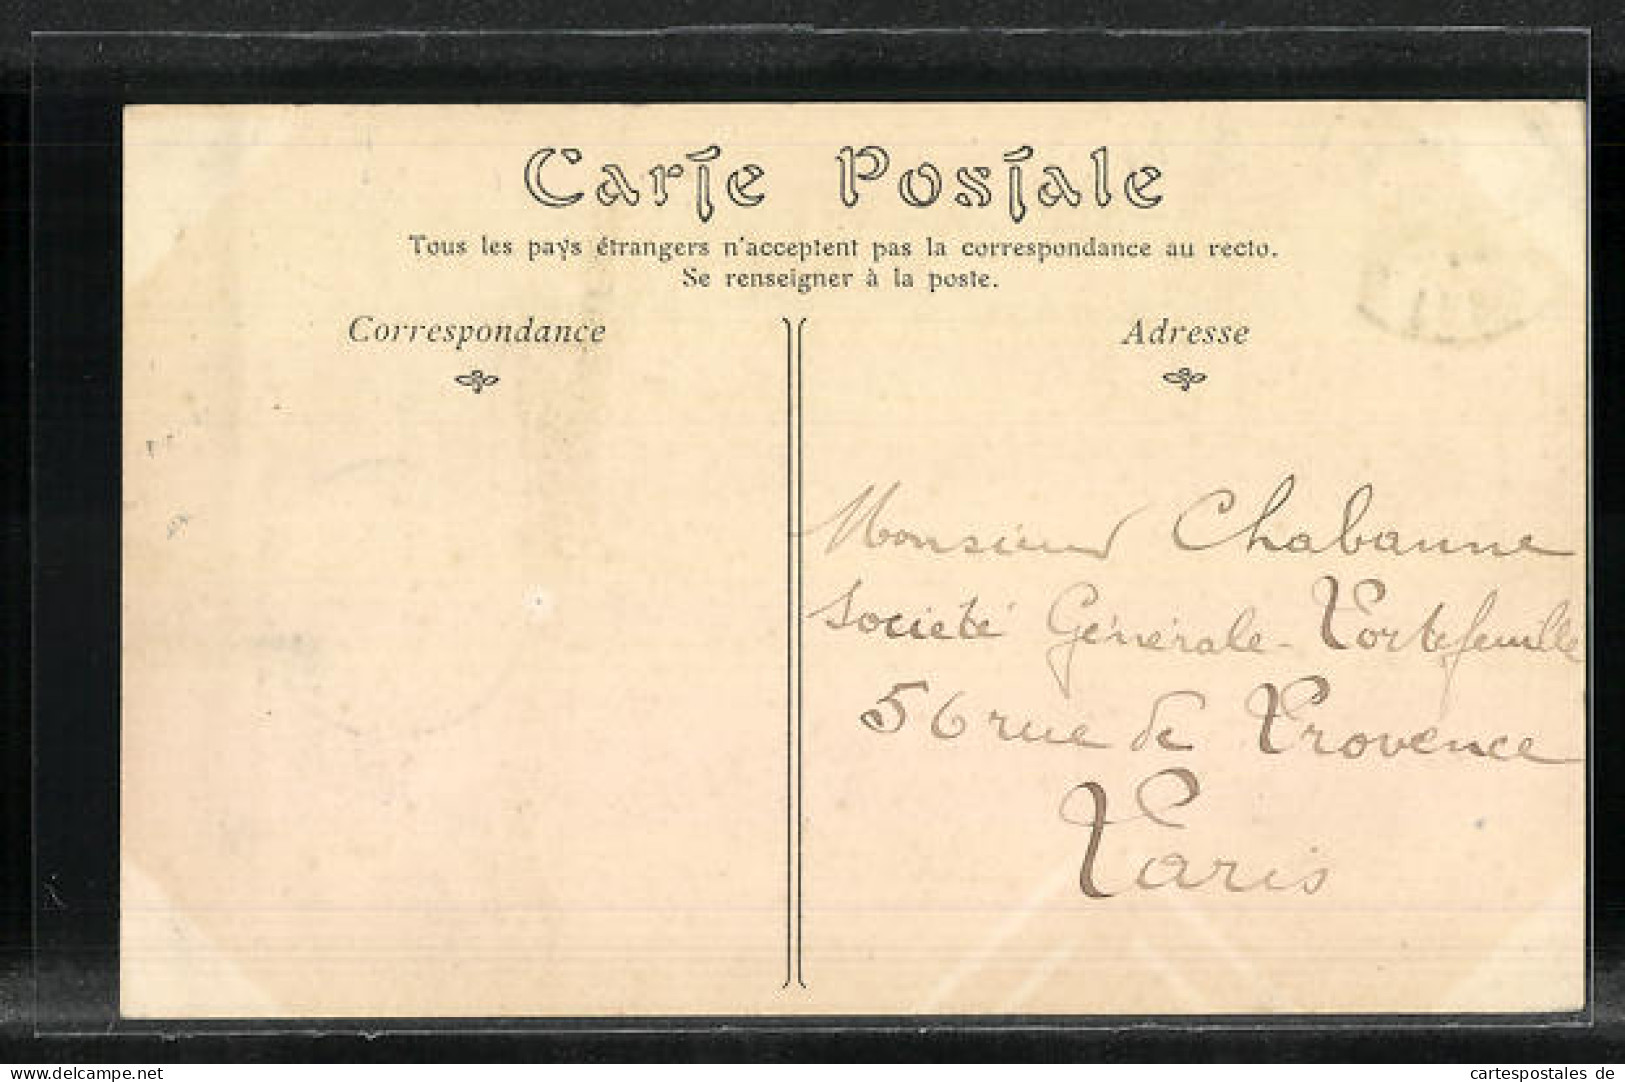 Carte Postale
Tous les pays étrangers n'acceptent pas la correspondance au recto.
Se renseigner à la poste.
Correspondance
Adresse
Monsieur Chabanne
Société Générale - Portefeuille
56 rue de Provence
Paris
www.delcampe.net
cartespostales de